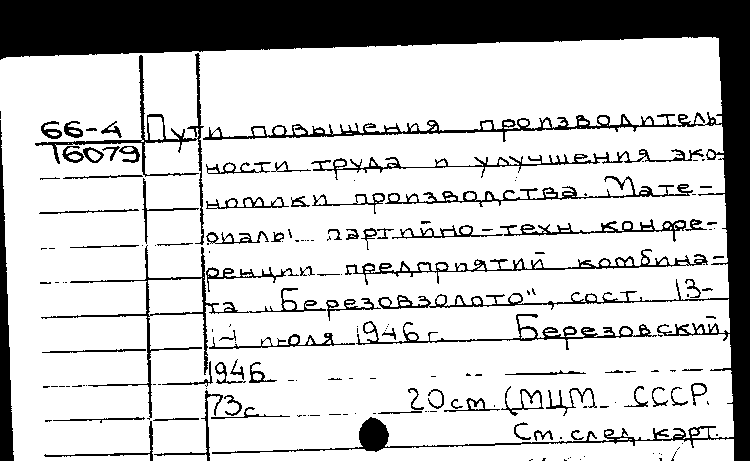 66-4 Пути повышения производитель-
16079 ности труда и улучшения эко-
номики производства. Мате-
риалы партийно-техн. конфе-
ренции предприятий комбина-
та „Березовзолото", сост. 13-
14 июля 1946 г. Березовский,
1946
73с. 20см (МЦМ СССР.
См. след. карт.